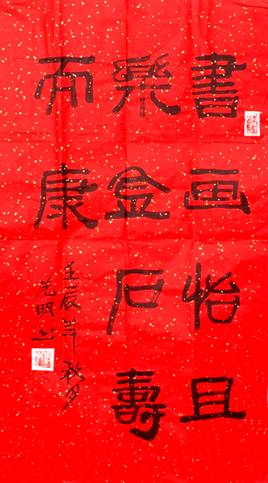 書画怡且
樂金石壽
而康
壬辰年秋月
光明